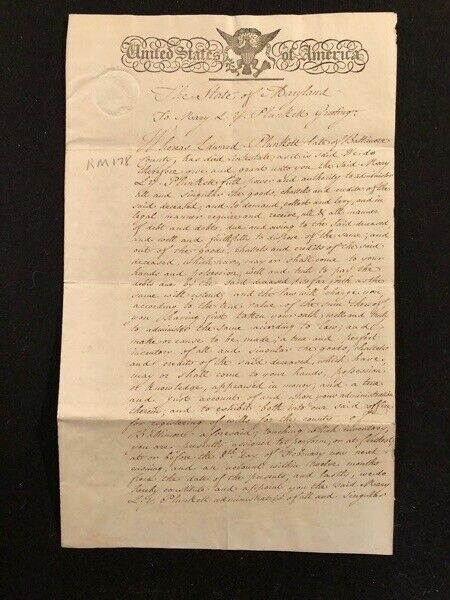 United States of America
The State of Maryland
To Mary L. V. Plunkett Greeting:
RM178
Whereas Edward Plunkett late of Baltimore
County, has died intestate as it is said We do
therefore give and grant unto you the said Mary
L. V. Plunkett full power and authority to administer
all and singular the goods, chattels and credits of the
said deceased, and to demand, collect and levy, and in
legal manner require and receive, all & all manner
of debt and debts, due and owing to the said deceased
and well and faithfully to dispose of the same; and
out of the goods, chattels and credits of the said
deceased, which have, may or shall come to your
hands and possession, well and truly to pay the
debts due by the said deceased, so far forth as the
same will extend, and the law will charge you,
according to the true value of the sum thereof
you having first taken your oath, well and truly
to administer the same according to law, and
make or cause to be made, a true and perfect
inventory of all and singular the goods, chattels
and credits of the said deceased, which have,
may or shall come to your hands, possession
or knowledge, appraised in money; and a true
and just account of and upon your administration
therein, and to exhibit both into our said office
for registering of wills for the county of
Baltimore aforesaid, touching which inventory,
you are hereby assigned to perform, on at furthest
at or before the 8th day of February now next
ensuing, and an account within twelve months
from the date of the presents, and lastly, we do
hereby constitute and appoint you the said Mary
L. V. Plunkett administratrix of all and singular